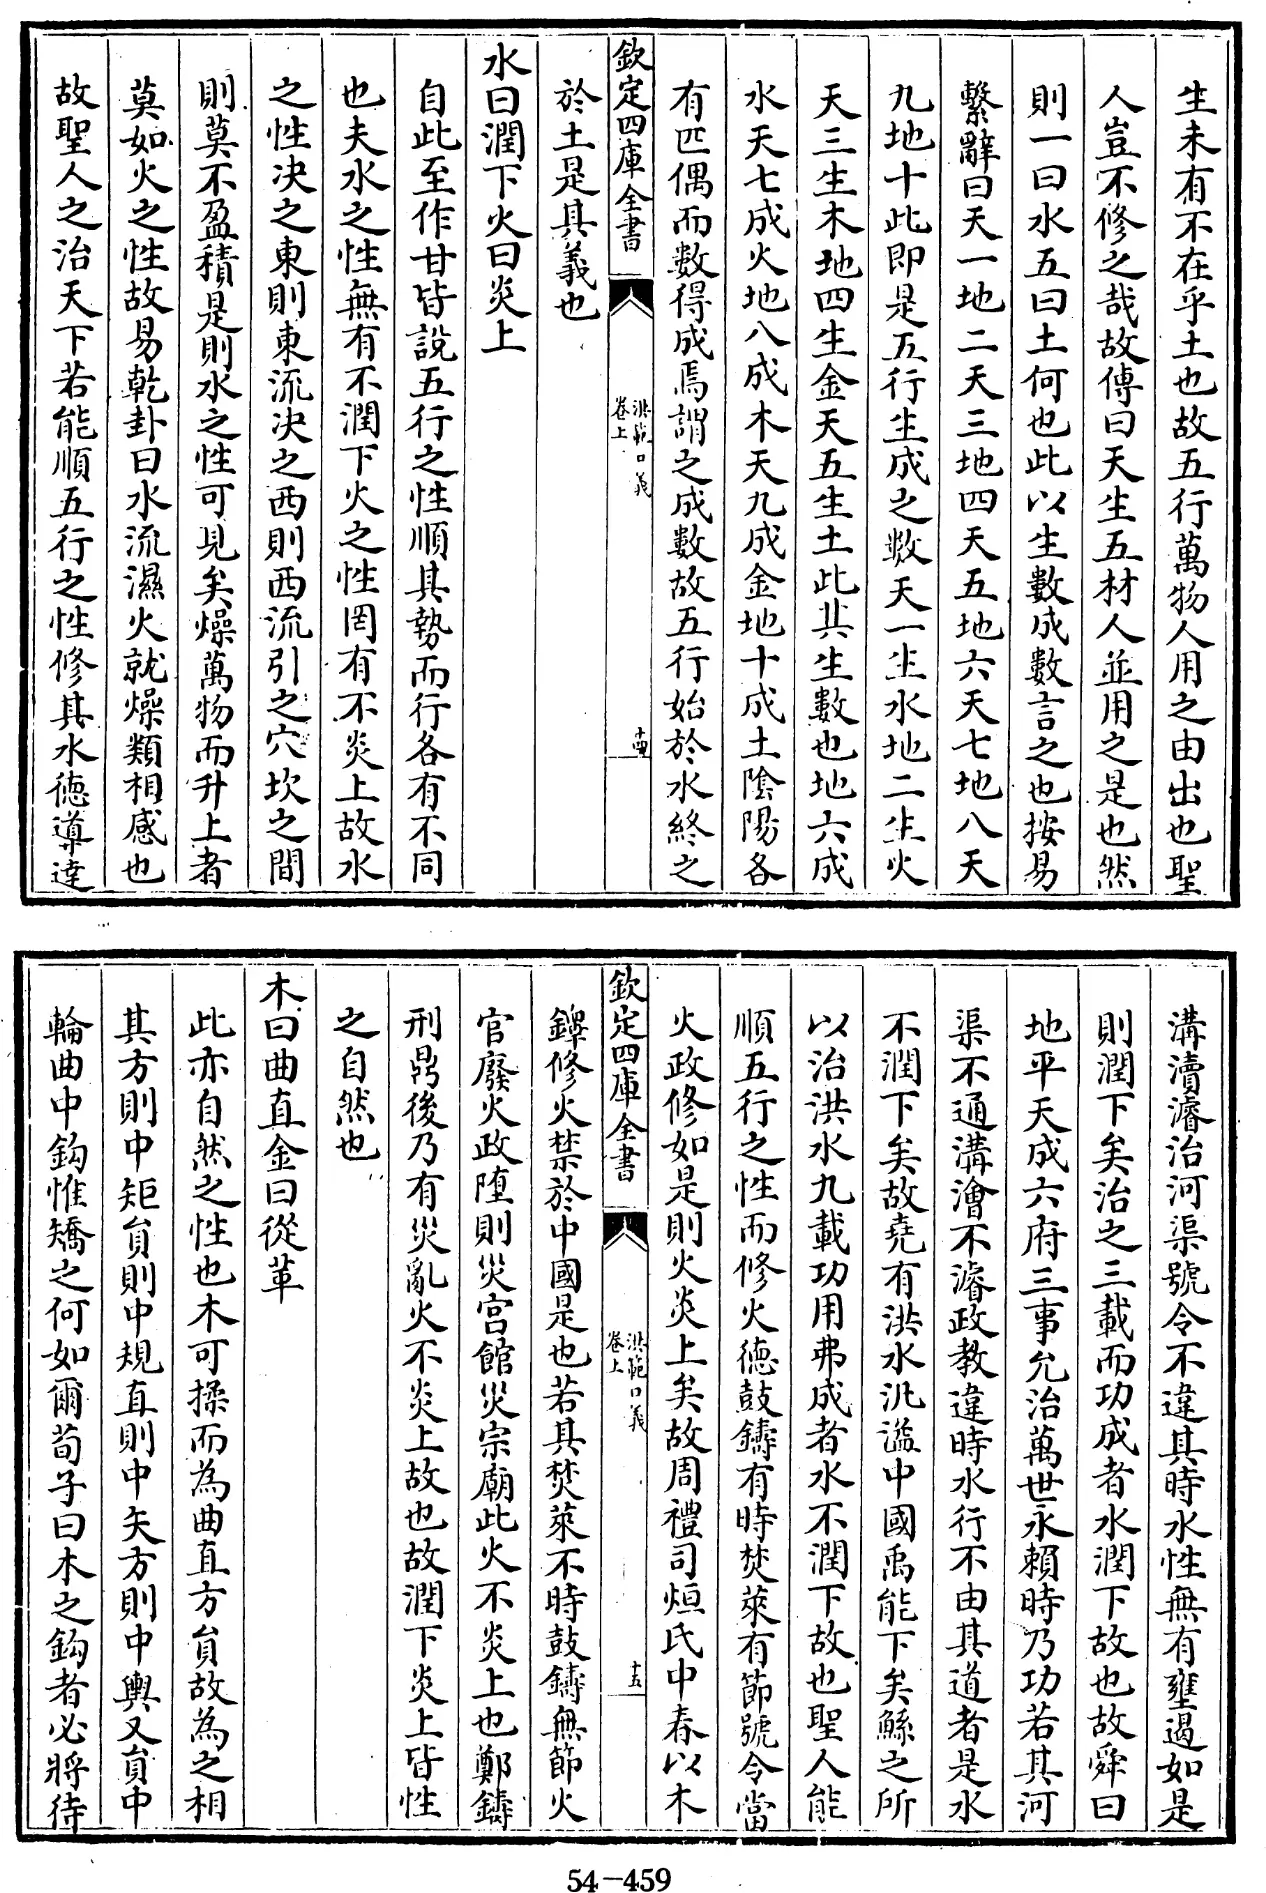 生未有不在乎土也故五行萬物人用之由出也聖
人豈不修之哉故傳曰天生五材人並用之是也然
則一曰水五曰土何也此以生數成數言之也按易
繫辭曰天一地二天三地四天五地六天七地八天
九地十此即是五行生成之數天一生水地二生火
天三生木地四生金天五生土此其生數也地六成
水天七成火地八成木天九成金地十成土陰陽各
有匹偶而數得成焉謂之成數故五行始於水終之
欽定四庫全書
洪範口義
卷上
十四
於土是其義也
水曰潤下火曰炎上
自此至作甘皆說五行之性順其勢而行各有不同
也夫水之性無有不潤下火之性罔有不炎上故水
之性决之東則東流决之西則西流引之穴坎之間
則莫不盈積是則水之性可見矣燥萬物而升上者
莫如火之性故易乾卦曰水流濕火就燥類相感也
故聖人之治天下若能順五行之性修其水德導達
溝瀆濬治河渠號令不違其時水性無有壅遏如是
則潤下矣治之三載而功成者水潤下故也故舜曰
地平天成六府三事允治萬世永賴時乃功若其河
渠不通溝澮不濬政教違時水行不由其道者是水
不潤下矣故堯有洪水汎溢中國禹能下矣鯀之所
以治洪水九載功用弗成者水不潤下故也聖人能
順五行之性而修火德鼓鑄有時焚萊有節號令當
火政修如是則火炎上矣故周禮司烜氏中春以木
欽定四庫全書
洪範口義
卷上
十五
鐸修火禁於中國是也若其焚萊不時鼓鑄無節火
官廢火政墮則災宫館災宗廟此火不炎上也鄭鑄
刑鼎後乃有災亂火不炎上故也故潤下炎上皆性
之自然也
木曰曲直金曰從革
此亦自然之性也木可揉而為曲直方員故為之相
其方則中矩員則中規直則中矢方則中輿又員中
輪曲中鈎惟矯之何如爾荀子曰木之鈎者必將待
54-459